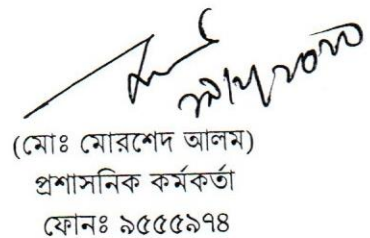 (মোঃ মোরশেদ আলম)
প্রশাসনিক কর্মকর্তা
ফোনঃ ৯৫৫৫৯৭৪